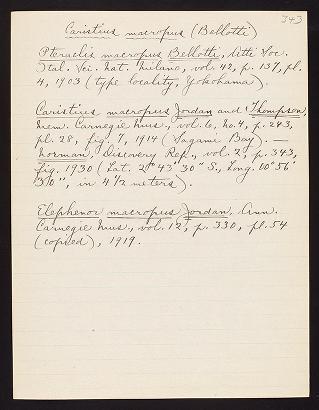 343
Caristius macropus (Bellotti)
Pteraclis macropus Bellotti, Atti Soc.
Ital. Sci. Nat. Milano, vol. 42, p. 137, pl.
4, 1903 (type locality, Yokohama).
Caristius macropus Jordan and Thompson,
Mem. Carnegie Mus., vol. 6, no. 4, p. 243,
pl. 28, fig. 7, 1914 (Sagami Bay). —
Norman, Discovery Rep., vol. 2, p. 343,
fig. 1930 (Lat. 43' 30" S., Long. 00° 56'
in 4 1/2 meters).
Elephenor macropus Jordan, Ann.
Carnegie Mus., vol. 12, p. 330, pl. 54
(copied), 1919.